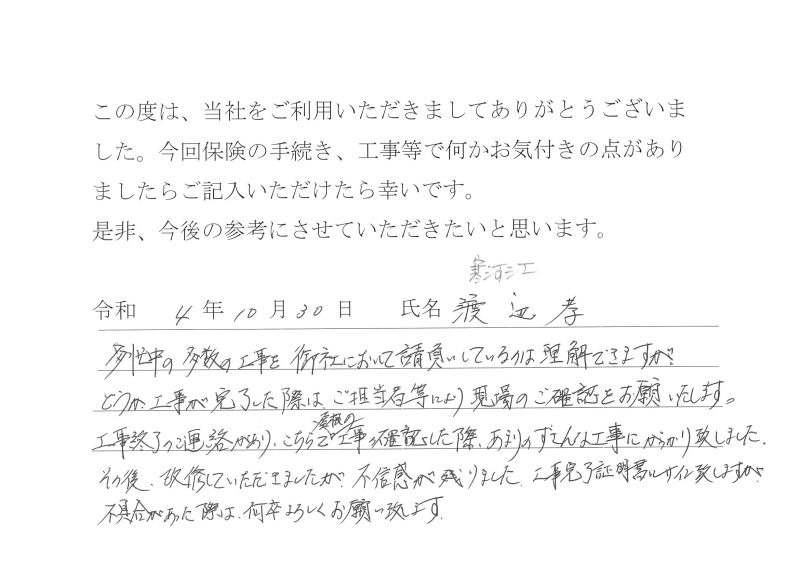 この度は、当社をご利用いただきましてありがとうございま
した。今回保険の手続き、工事等で何かお気付きの点があり
ましたらご記入いただけたら幸いです。
是非、今後の参考にさせていただきたいと思います。
寒河江
令和 4 年 10 月 30 日 氏名 渡辺 孝
多忙中の多数の工事を御社において請負いしているのは理解できますが
どうか工事が完了した際は、ご担当者等により現場のご確認をお願いいたします。
屋根の
工事終了のご連絡があり、こちらで工事を確認した際、あまりのずさんな工事にがっかり致しました。
その後、改修していただきましたが、不信感が残りました。工事完了証明書にサイン致しますが
不具合があった際は、何卒よろしくお願い致します。